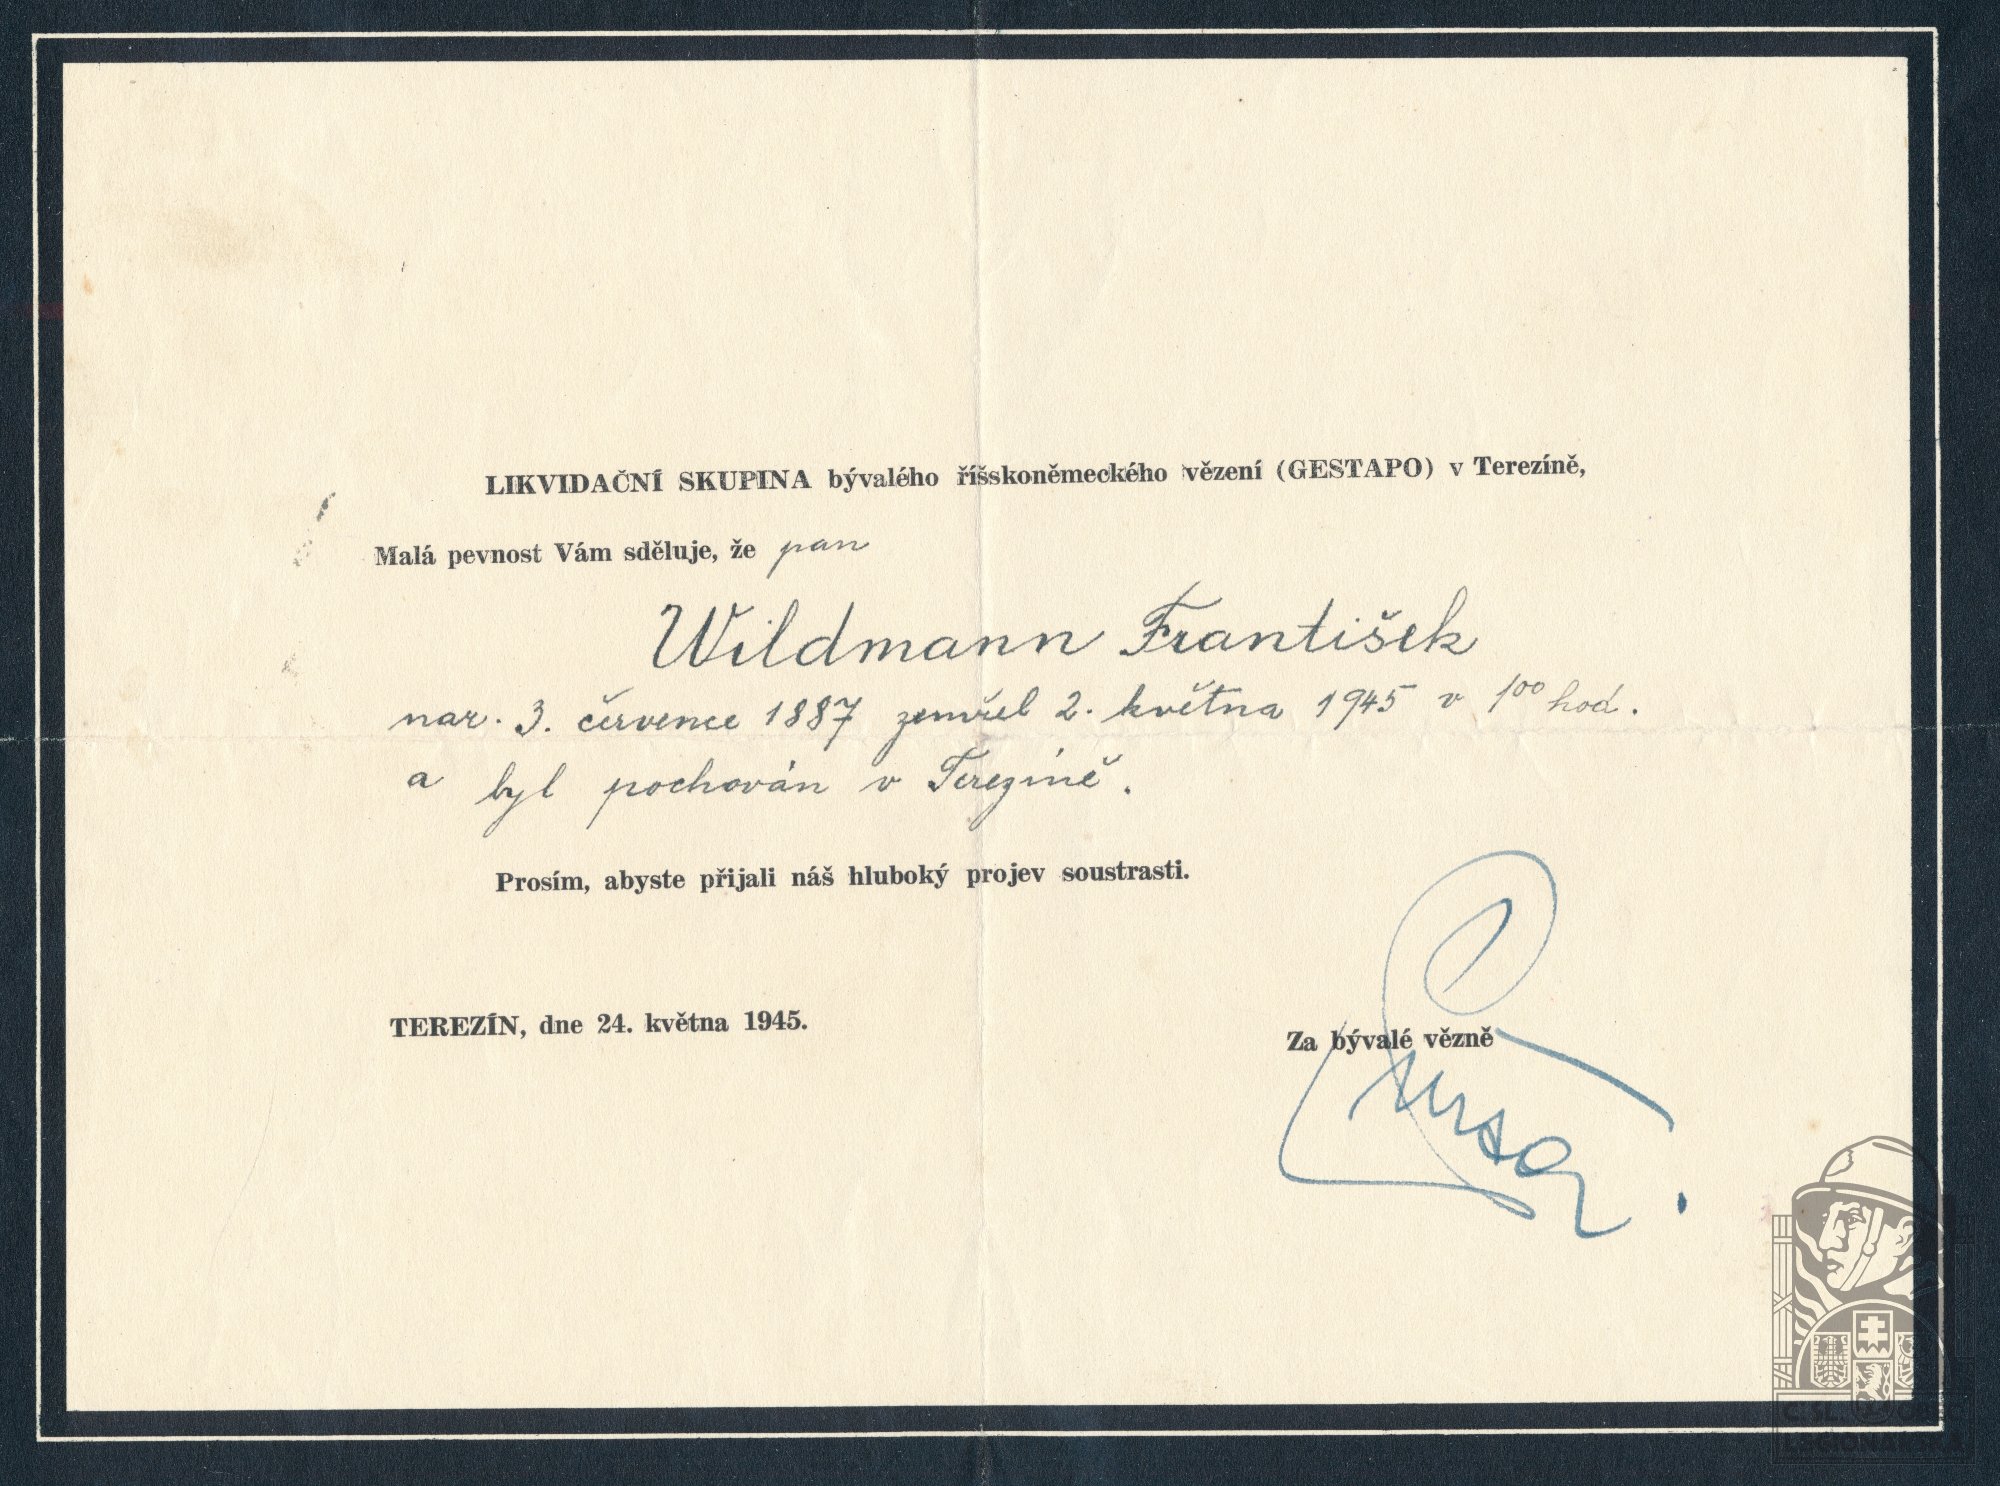 LIKVIDAČNÍ SKUPINA bývalého říšskoněmeckého vězení (GESTAPO) v Terezíně,
Malá pevnost Vám sděluje, že pan
Wildmann František
nar. 3. července 1887 zemřel 2. května 1945 v 1⁰⁰ hod.
a byl pochován v Terezíně.
Prosím, abyste přijali náš hluboký projev soustrasti.
TEREZÍN, dne 24. května 1945.
Za bývalé vězně
LEGIONÁŘSKÁ